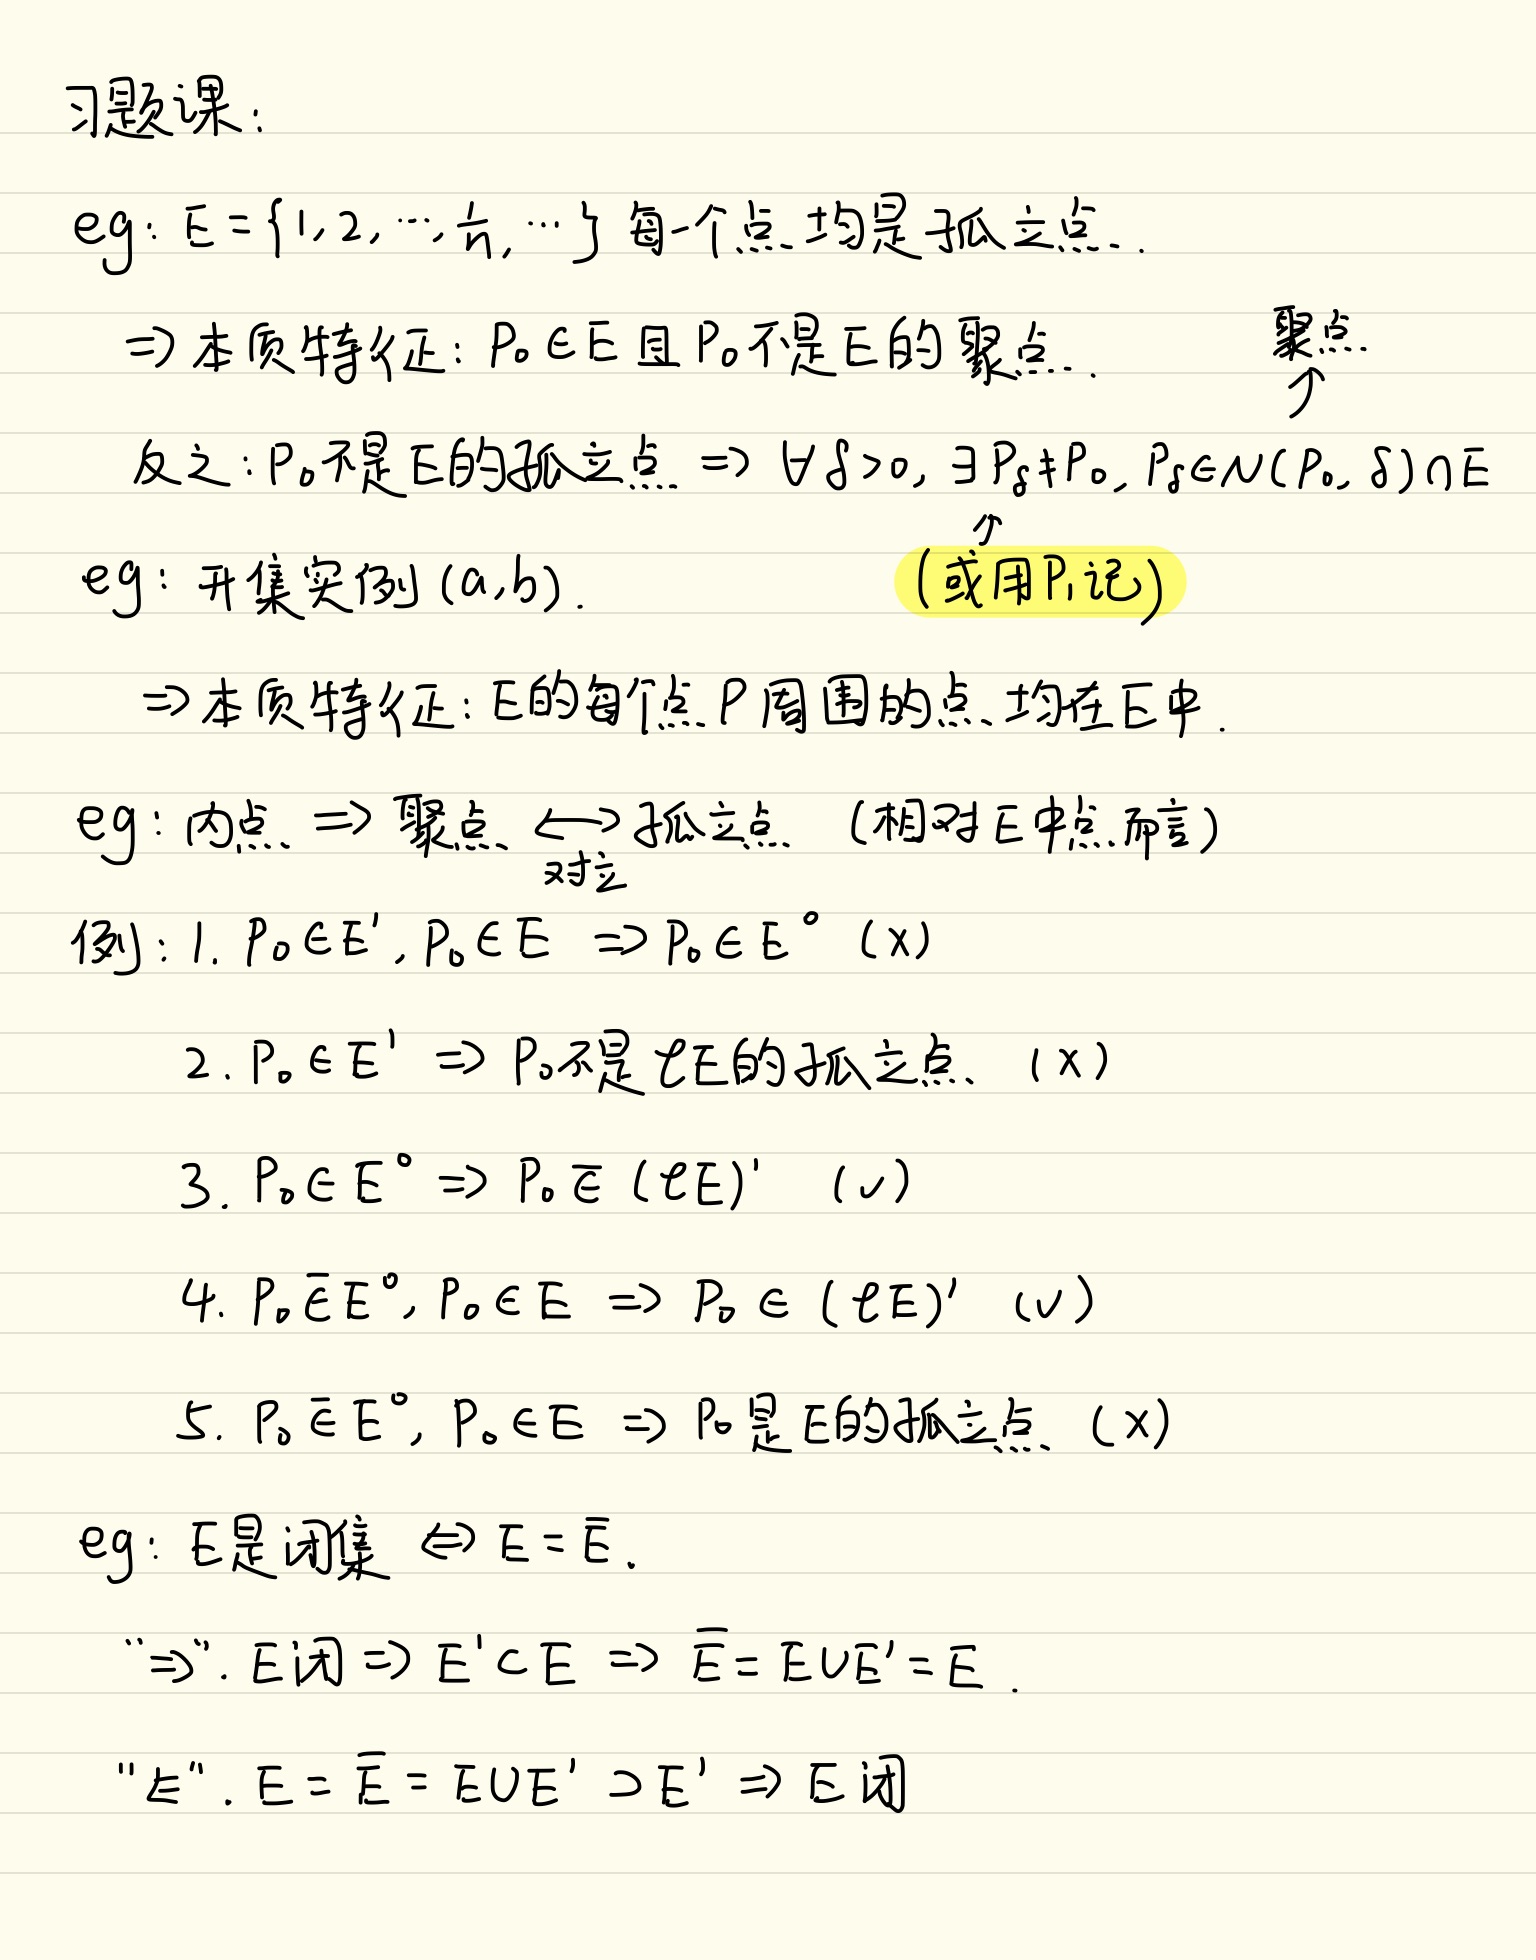 习题课:
eg: E={1,2,…,1/n,…} 每一个点均是孤立点.
⇒本质特征: P₀∈E且P₀不是E的聚点.
聚点
↑
反之: P₀不是E的孤立点 ⇒ ∀δ>0, ∃Pδ≠P₀, Pδ∈N(P₀, δ)∩E
↑
eg: 开集实例(a,b).
(或用P₁记)
⇒本质特征: E的每个点P周围的点均在E中.
eg: 内点 ⇒ 聚点 ⟷ 孤立点 (相对E中点而言)
对立
例: 1. P₀∈E′, P₀∈E ⇒ P₀∈E° (×)
2. P₀∈E′ ⇒ P₀不是𝒞E的孤立点 (×)
3. P₀∈E° ⇒ P₀∈̄(𝒞E)′ (√)
4. P₀∈̄E°, P₀∈E ⇒ P₀∈(𝒞E)′ (√)
5. P₀∈̄E°, P₀∈E ⇒ P₀是E的孤立点 (×)
eg: E是闭集 ⇔ E=Ē.
"⇒". E闭⇒E′⊂E ⇒ Ē=E∪E′=E.
"⇐". E=Ē=E∪E′⊃E′ ⇒ E闭